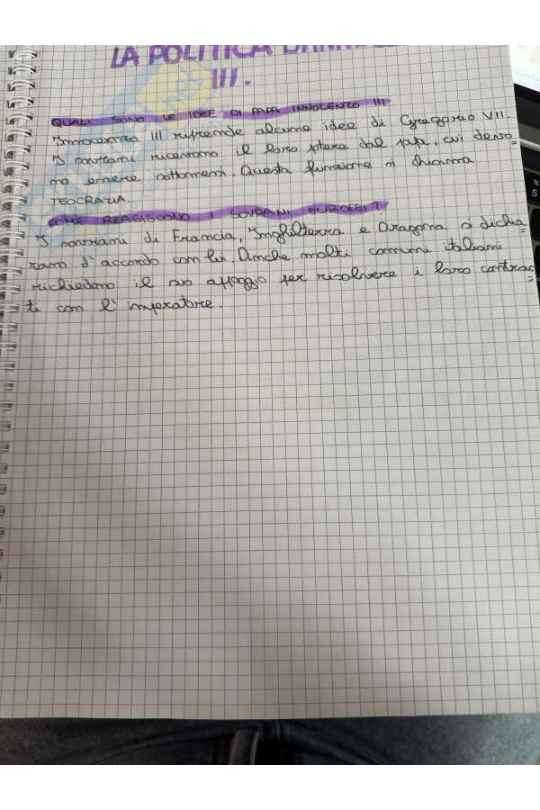 LA POLITICA
III.
QUALI SONO LE IDEE DI PAPA INNOCENZO III?
Innocenzo III riprende alcune idee di Gregorio VII.
I sovrani ricevono il loro potere dal papa, cui devo=
no essere sottomessi. Questa funzione si chiama
TEOCRAZIA.
COME REAGISCONO I SOVRANI EUROPEI?
I sovrani di Francia, Inghilterra e Aragona si dichia
rano d'accordo con lui. Anche molti comuni italiani
richiedono il suo appoggio per risolvere i loro contras=
ti con l'imperatore.